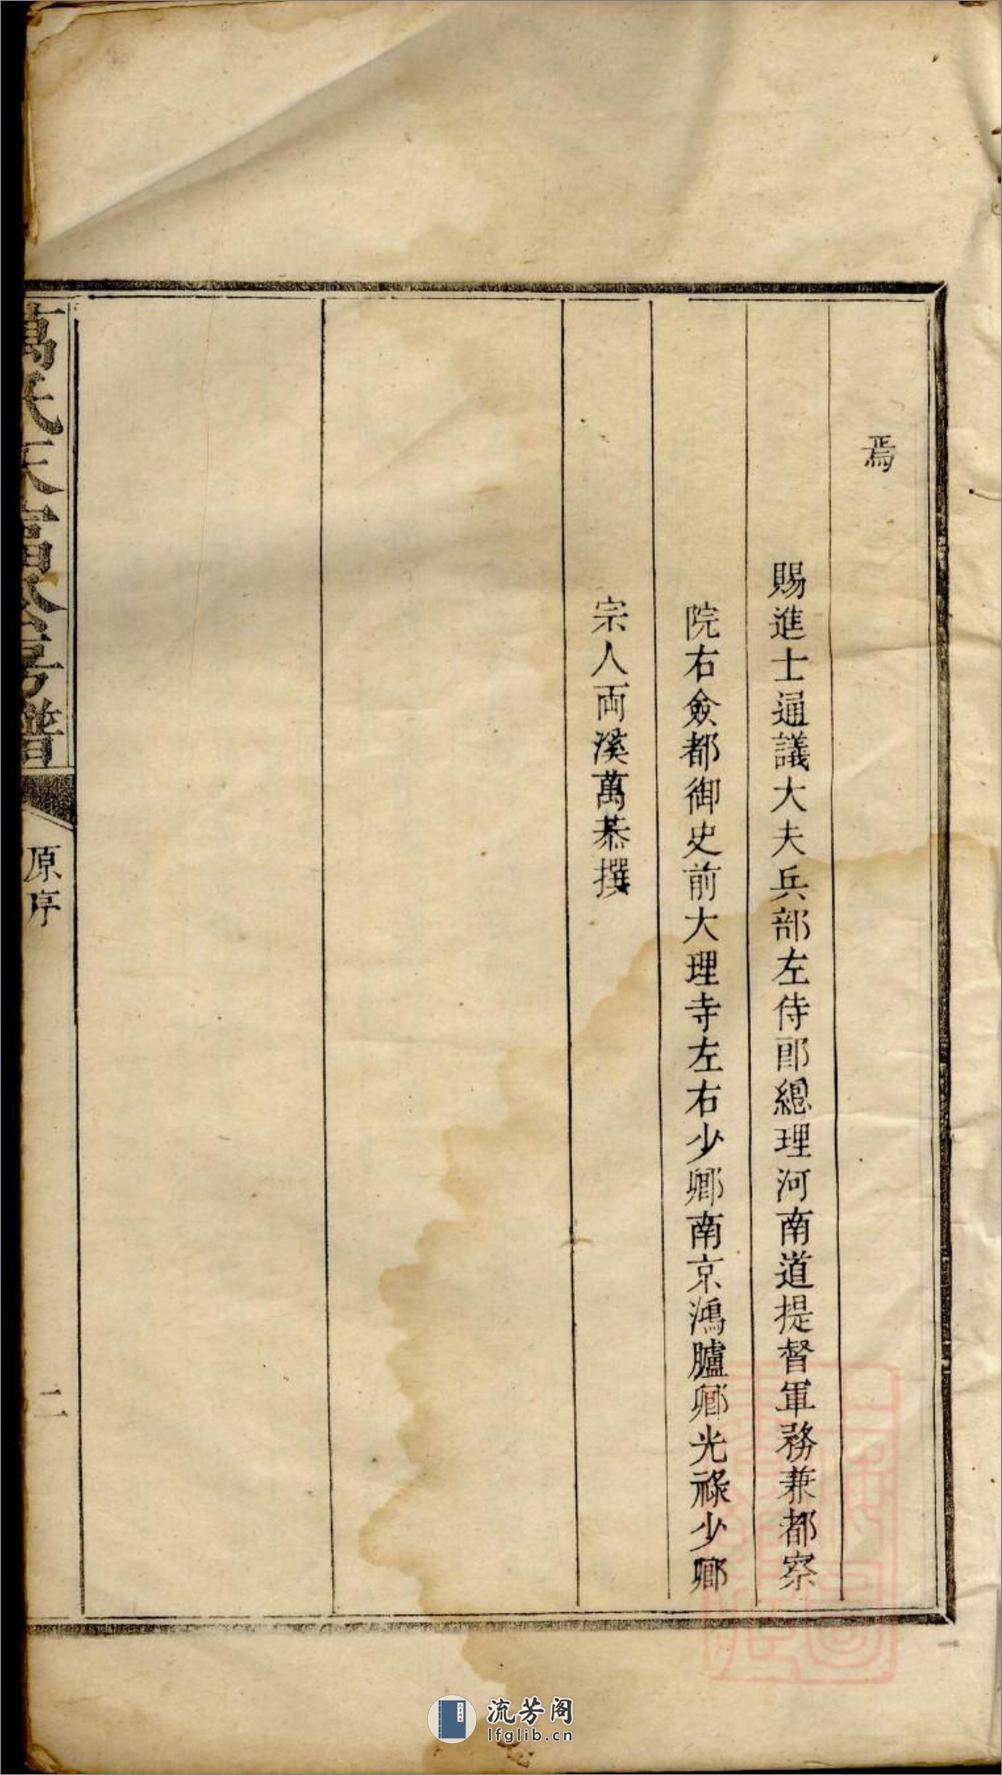 焉
賜進士通議大夫兵部左侍郎總理河南道提督軍務兼都察
院右僉都御史前大理寺左右少卿南京鴻臚卿光祿少卿
宗人兩溪萬恭撰
萬氏天富公房譜
原序
二
流芳阁
lfglib.cn